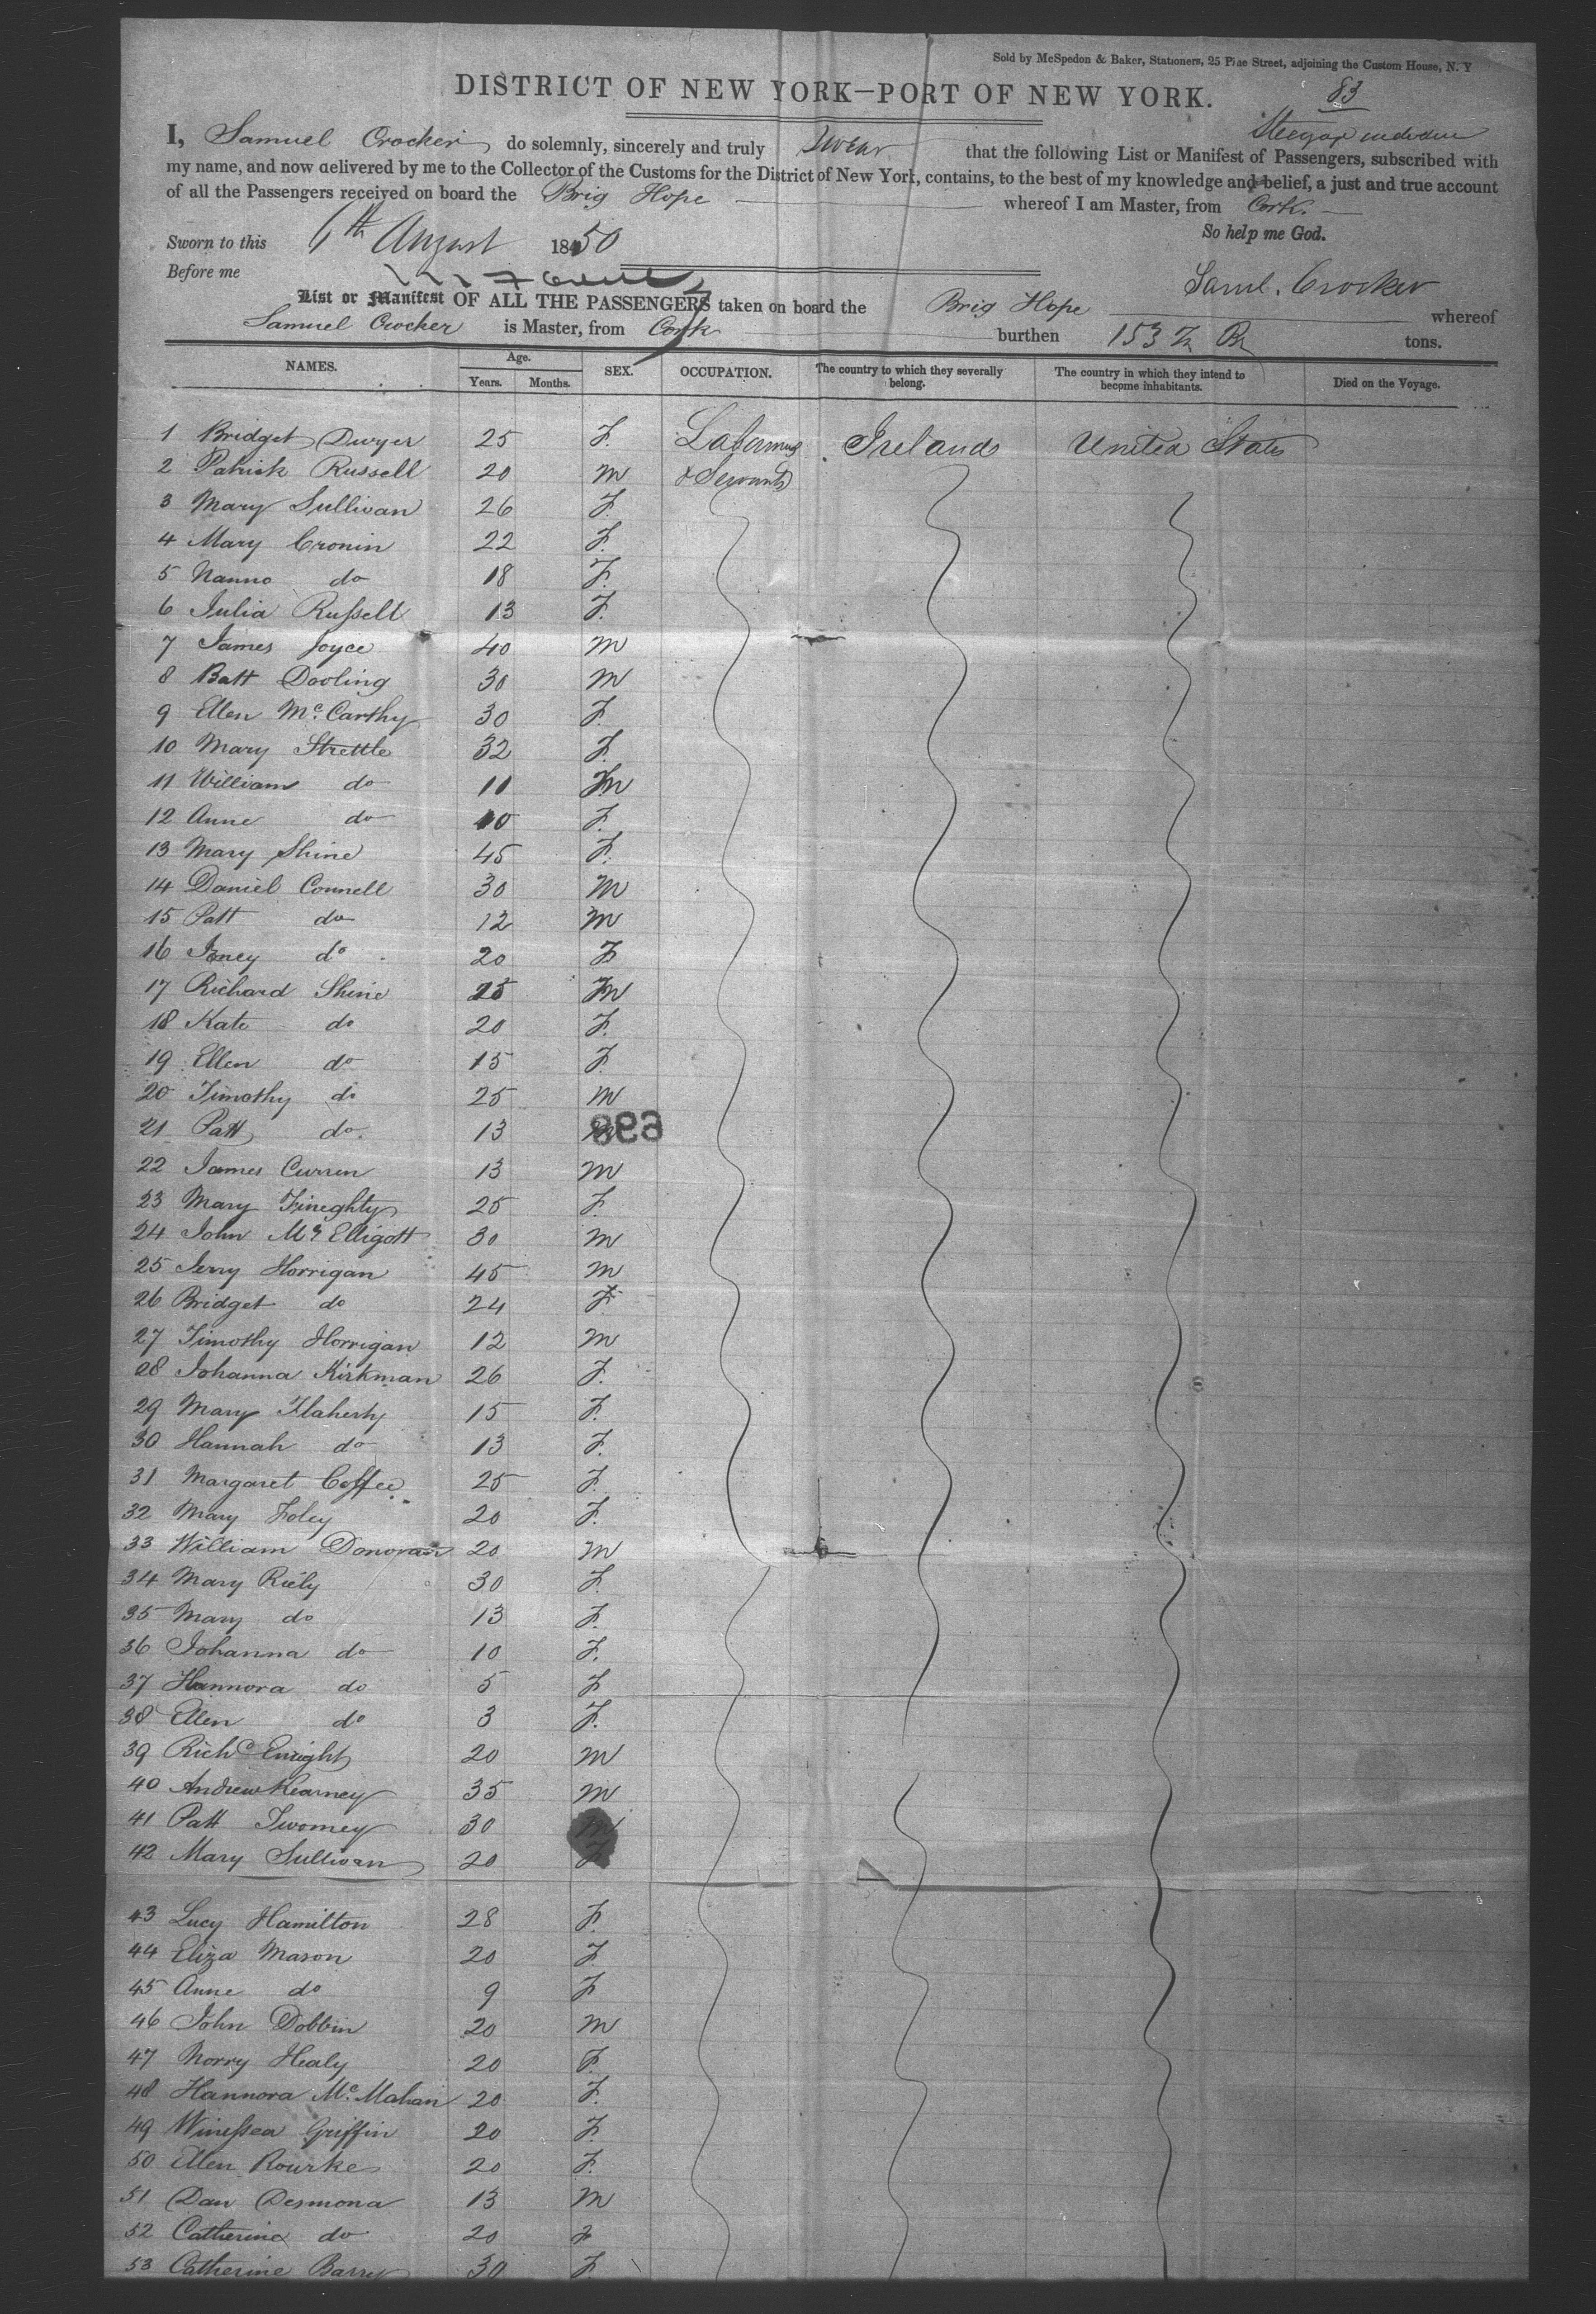 Sold by McSpedon & Baker, Stationers, 25 Pine Street, adjoining the Custom House, N. Y
DISTRICT OF NEW YORK—PORT OF NEW YORK.
83
I, Samuel Crocker do solemnly, sincerely and truly swear that the following List or Manifest of Passengers, subscribed with
my name, and now delivered by me to the Collector of the Customs for the District of New York, contains, to the best of my knowledge and belief, a just and true account
of all the Passengers received on board the Brig Hope whereof I am Master, from Cork.
So help me God.
Sworn to this 6th August 1850
Before me
Saml. Crocker
List or Manifest OF ALL THE PASSENGERS taken on board the Brig Hope whereof
Samuel Crocker is Master, from Cork burthen 153 tons.
NAMES. Age. Years. Months. SEX. OCCUPATION. The country to which they severally belong. The country in which they intend to become inhabitants. Died on the Voyage.
1 Bridget Dwyer 25 F. Labourers Ireland United States
2 Patrick Russell 20 M & Servants
3 Mary Sullivan 26 F.
4 Mary Cronin 22 F.
5 Nanno do 18 F.
6 Julia Russell 13 F.
7 James Joyce 40 M
8 Batt Dooling 30 M
9 Ellen Mc.Carthy 30 F.
10 Mary Strettle 32 F.
11 William do 11 M
12 Anne do 10 F.
13 Mary Shine 45 F.
14 Daniel Connell 30 M
15 Patt do 12 M
16 do 20 F
17 Richard Shine 25 M
18 Kate do 20 F.
19 Ellen do 15 F.
20 Timothy do 25 M
21 Patt do. 13 M
698
22 James Curren 13 M
23 Mary Fineghty 25 F.
24 John Mc Elligott 30 M
25 Jerry Horrigan 45 M
26 Bridget do 24 F
27 Timothy Horrigan 12 M
28 Johanna Kirkman 26 F.
29 Mary Flaherty 15 F.
30 Hannah do 13 F.
31 Margaret Coffee 25 F.
32 Mary Foley 20 F.
33 William Donovan 20 M
34 Mary Riely 30 F.
35 Mary do 13 F.
36 Johanna do 10 F.
37 Hannora do 5 F
38 Ellen do 3 F.
39 Richd Enright 20 M
40 Andrew Kearney 35 M
41 Patt Twomey 30 M
42 Mary Sullivan 20 F
43 Lucy Hamilton 28 F.
44 Eliza Mason 20 F
45 Anne do 9 F
46 John Dobbin 20 M
47 Norry Healy 20 F.
48 Hannora Mc.Mahan 20 F.
49 Winessea Griffin 20 F.
50 Ellen Rourke 20 F.
51 Dan Desmond 13 M
52 Catherine do 20 F
53 Catherine Barry 30 F.